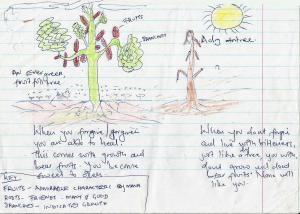 FRUITS
BRANCHES
A dry tree.
An Evergreen
fruitful tree
When you forgive/forgiven
you are able to heal.
this comes with growth and
bear fruits. You become
sweet to others.
KEY
FRUITS - ADMIRABLE CHARACTERS BY MAN
ROOTS - FRIENDS - MANY & GOOD
BRANCHES - INDICATES GROWTH
When you dont forgive
and live with bitterness,
just like a tree, you wont
grow and
bear fruits. None will
like you.